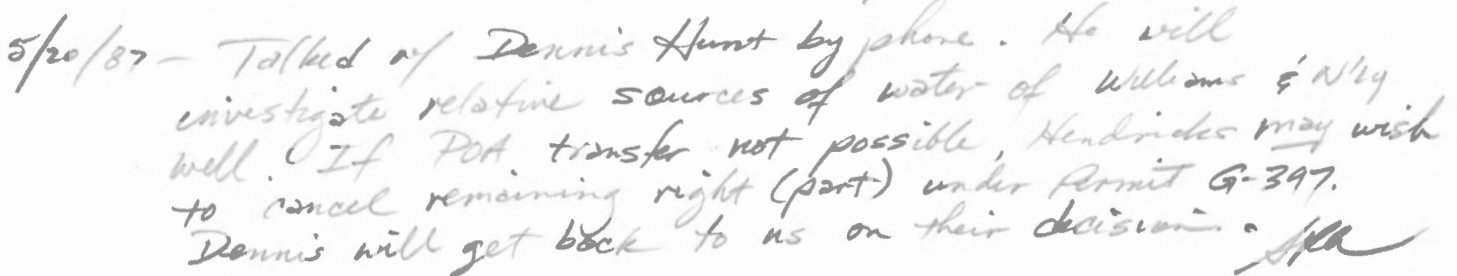 5/20/87 - Talked w/ Dennis Hunt by phone. He will
investigate relative sources of water of Williams & N'ly
well. If POA transfer not possible, Hendricks may wish
to cancel remaining right (part) under Permit G-397.
Dennis will get back to us on their decision.